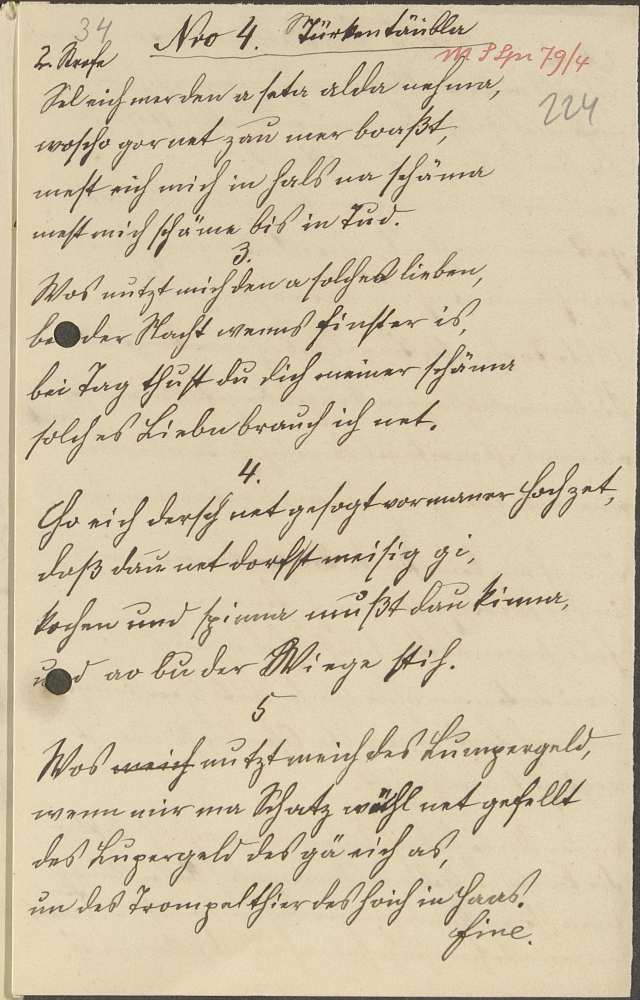 34
Nro 4. Türkentäubla
M S Spr 79/4
2. Strofe
224
Sel eich mer den a seta alda nehma,
wo scho gor net zau mer boaßt,
mest eich mich in Hals na schäma
mest mich schäme bis in Tud.
3.
Wos nutzt mich den a solches lieben,
bei der Nacht wenns finster is,
bei Tag thust du dich meiner schäma
solches Liebn brauch ich net.
4.
Ho eich dersch net gesogt vor maner Hochzet,
daß dau net dorfst meisig gi,
kochen und spinna mußt dau kinna,
und ao bu der Wiege stih.
5
Wos meich nutzt meich des Lumpergeld,
wenn mir ma Schatz wöhl net gefellt
des Lupergeld des gä eich as,
un des Trompelthier des hoich in Haas.
fine.